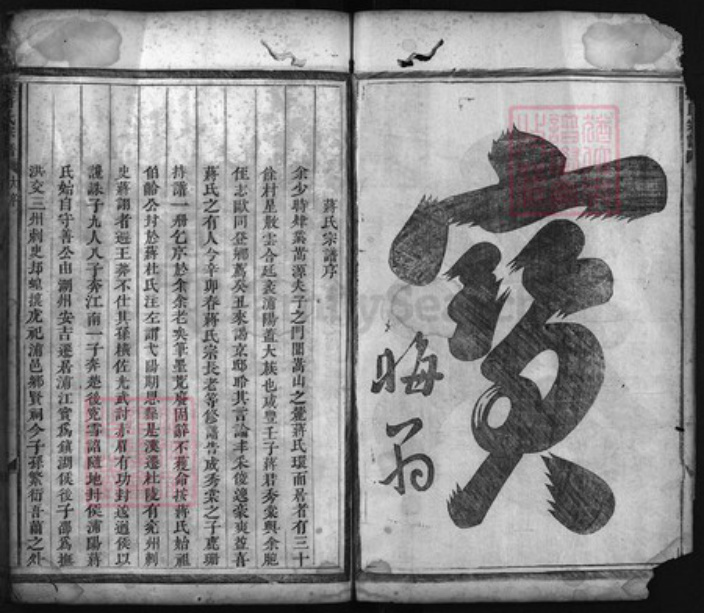 寶
晦翁
蔣氏宗譜序
余少時肄業嵩源夫子之門聞嵩山之麓蔣氏環而居者有三十
餘村星散雲合廷袤浦陽蓋大族也咸豐壬子蔣君秀棠與余胞
侄志歐同登鄉薦癸丑來謁京邸聆其言論丰采俊邁豪爽竊喜
蔣氏之有人今辛卯春蔣氏宗長老等修譜告成秀棠之子鹿珊
持譜一冊乞序於余余老矣筆墨荒廢固辭不獲命按蔣氏始祖
伯齡公封於蔣杜氏注左謂弋陽期思縣是漢遷杜陵有兗州刺
史蔣詡者避王莽不仕其孫橫佐光武討赤眉有功封逡遒侯以
讒誅子九人八子奔江南一子奔
後冤雪詔隨地封侯浦陽蔣
氏始自守善公由湖州安吉遷居浦江實為鎮湖侯後子邵為撫
洪交三州刺史
虎祀浦邑鄉賢祠今子孫繁衍吾蕭之外
FamilySearch